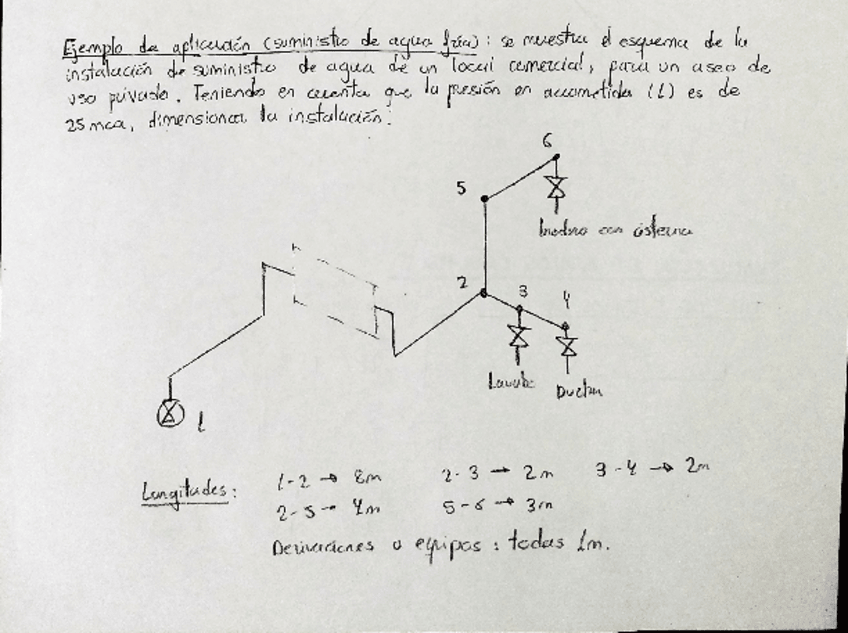 Ejemplo de aplicación (suministro de agua fría): se muestra el esquema de la
instalación de suministro de agua de un local comercial, para un aseo de
uso privado. Teniendo en cuenta que la presión en acometida (1) es de
25 mca, dimensionar la instalación:
6
5
Inodoro con cisterna
2
3
4
Lavabo
Ducha
1
Longitudes:
1-2 → 8m
2-3 → 2m
3-4 → 2m
2-5 → 4m
5-6 → 3m
Derivaciones a equipos: todas 1m.